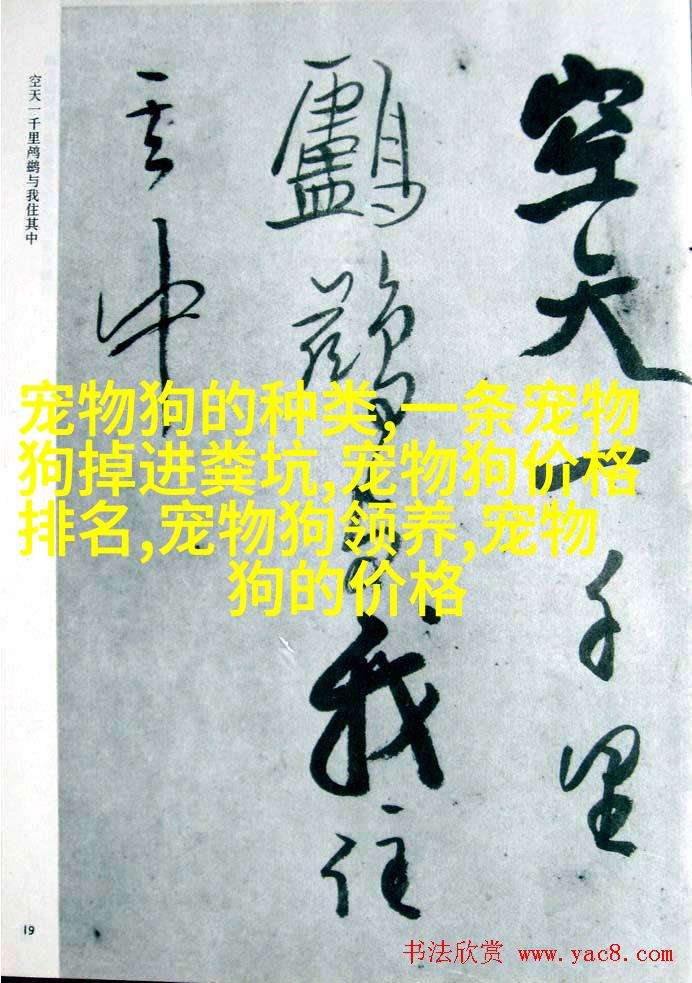 空天一千里
鸕鶿我住
其中
空天一千里鸬鹚与我住其中
宠物狗的种类,一条宠物
狗掉进粪坑,宠物狗价格
排名,宠物狗领养,宠物
狗的价格
19
书法欣赏 www.yac8.com